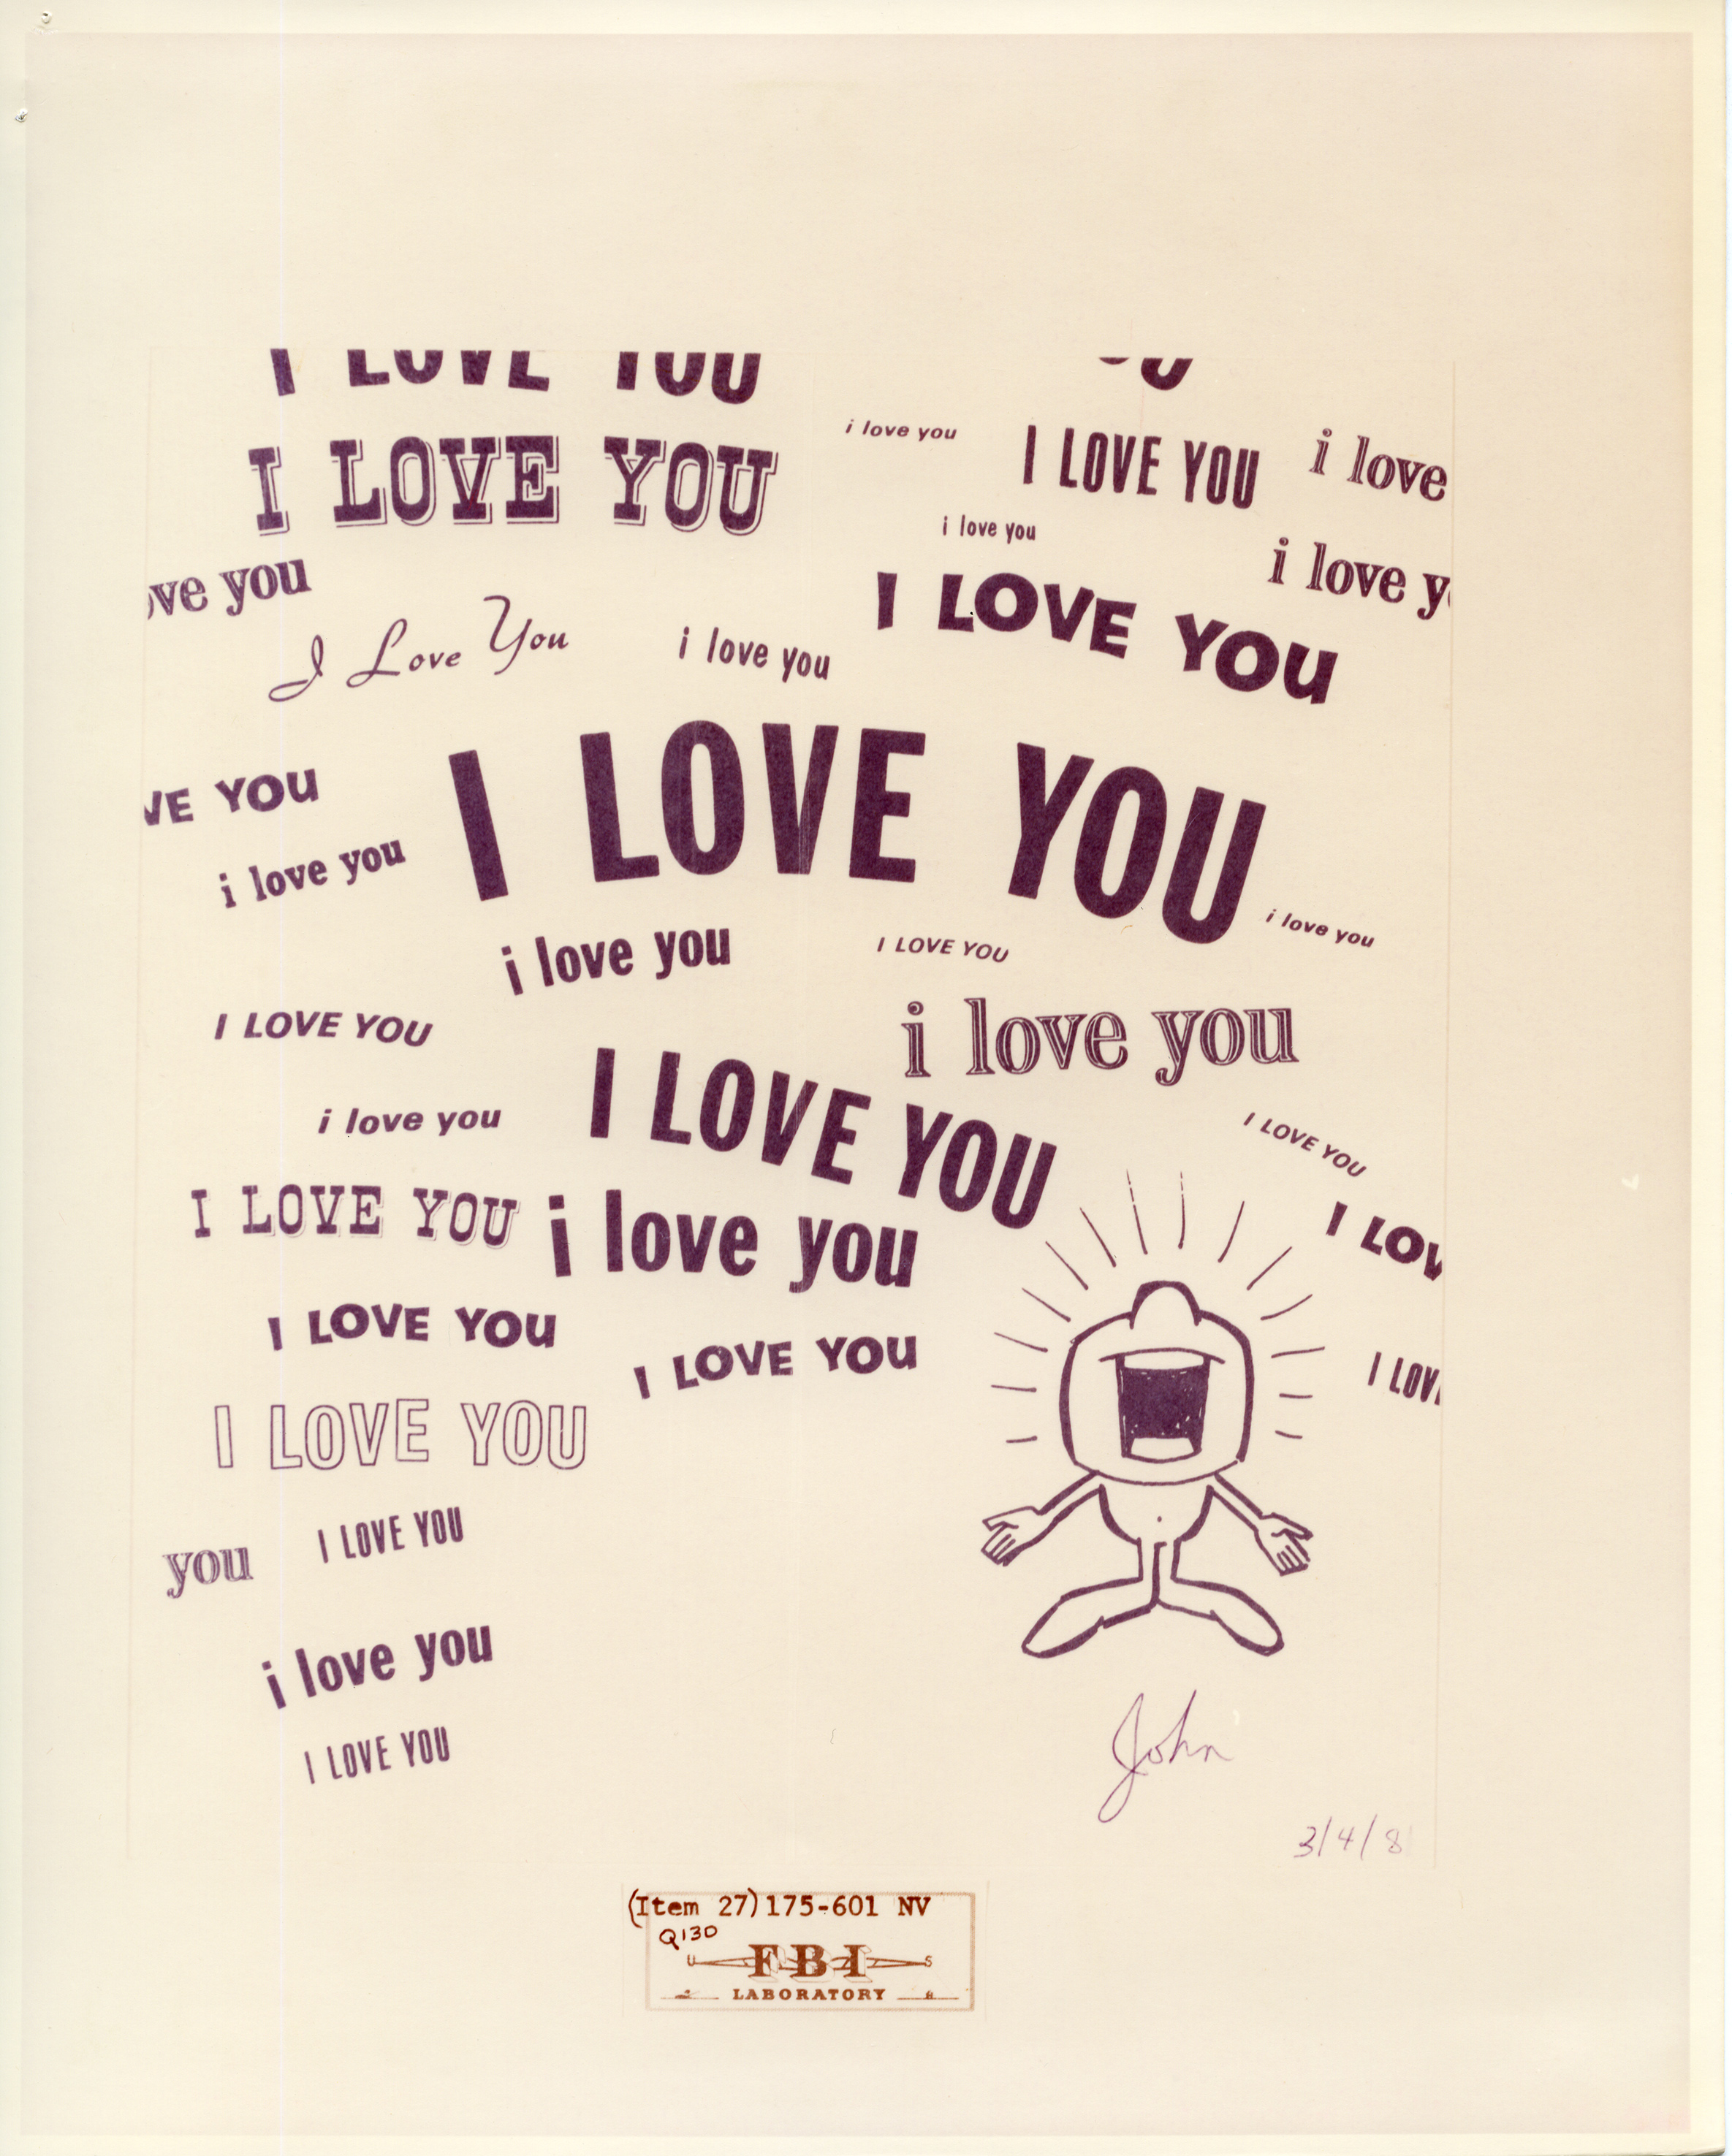 I LOVE YOU
OU
i love you
I LOVE YOU
i love
I LOVE YOU
i love you
i love y
ove you
I LOVE YOU
I Love You
i love you
I LOVE YOU
VE YOU
i love you
i love you
i love you
I LOVE YOU
i love you
I LOVE YOU
I LOVE YOU
i love you
I LOVE YOU
I LOVE YOU
i love you
I LOV
I LOVE YOU
I LOVE YOU
I LOV
I LOVE YOU
I LOVE YOU
you
i love you
I LOVE YOU
John
3/4/8
(Item 27) 175-601 NV
Q130
U FBI S
LABORATORY